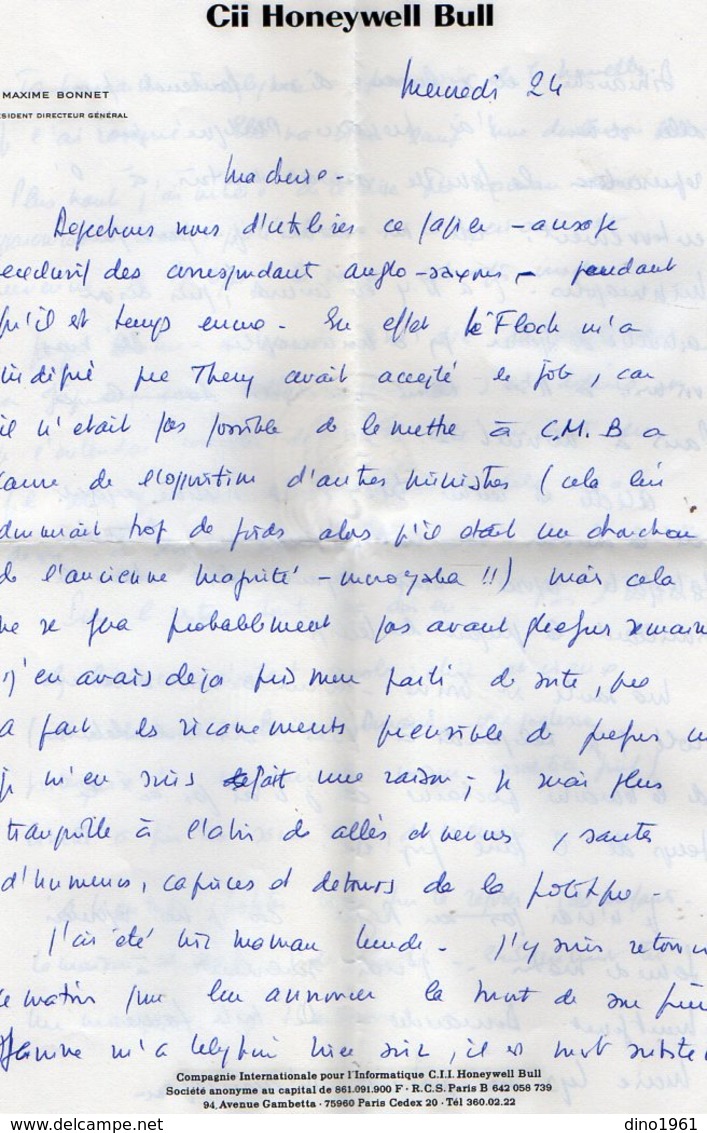 Cii Honeywell Bull
MAXIME BONNET
ESIDENT DIRECTEUR GÉNÉRAL
Mercredi 24
Ma chérie -
Dépêchons nous d'utiliser ce papier - auxofe
exclusif des correspondant anglo-saxons, - pendant
qu'il est temps encore - En effet le Floch m'a
que Thery avait accepté le job, car
il n'était pas possible de le mettre à C.M.B a
cause de l'opposition d'autres ministres (cela lui
donnerait trop de poids alors qu'il était un
de l'ancienne majorité - incroyable !!) mais cela
ne se fera probablement pas avant quelques semaines
j'en avais déjà pris mon parti de sorte, que
a part les ricanements prévisible de
je m'en suis fait une raison ; je serai plus
tranquille à l'abri de allées et venues, sautes
d'humeurs, caprices et détours de la politique -
J'ai été voir maman lundi - J'y suis retourné
ce matin pour lui annoncer la mort de son frère
m'a téléphoné hier soir, il est mort subite
Compagnie Internationale pour l'Informatique C.I.I. Honeywell Bull
Société anonyme au capital de 861.091.900 F · R.C.S. Paris B 642 058 739
94, Avenue Gambetta · 75960 Paris Cedex 20 · Tél 360.02.22
dino1961